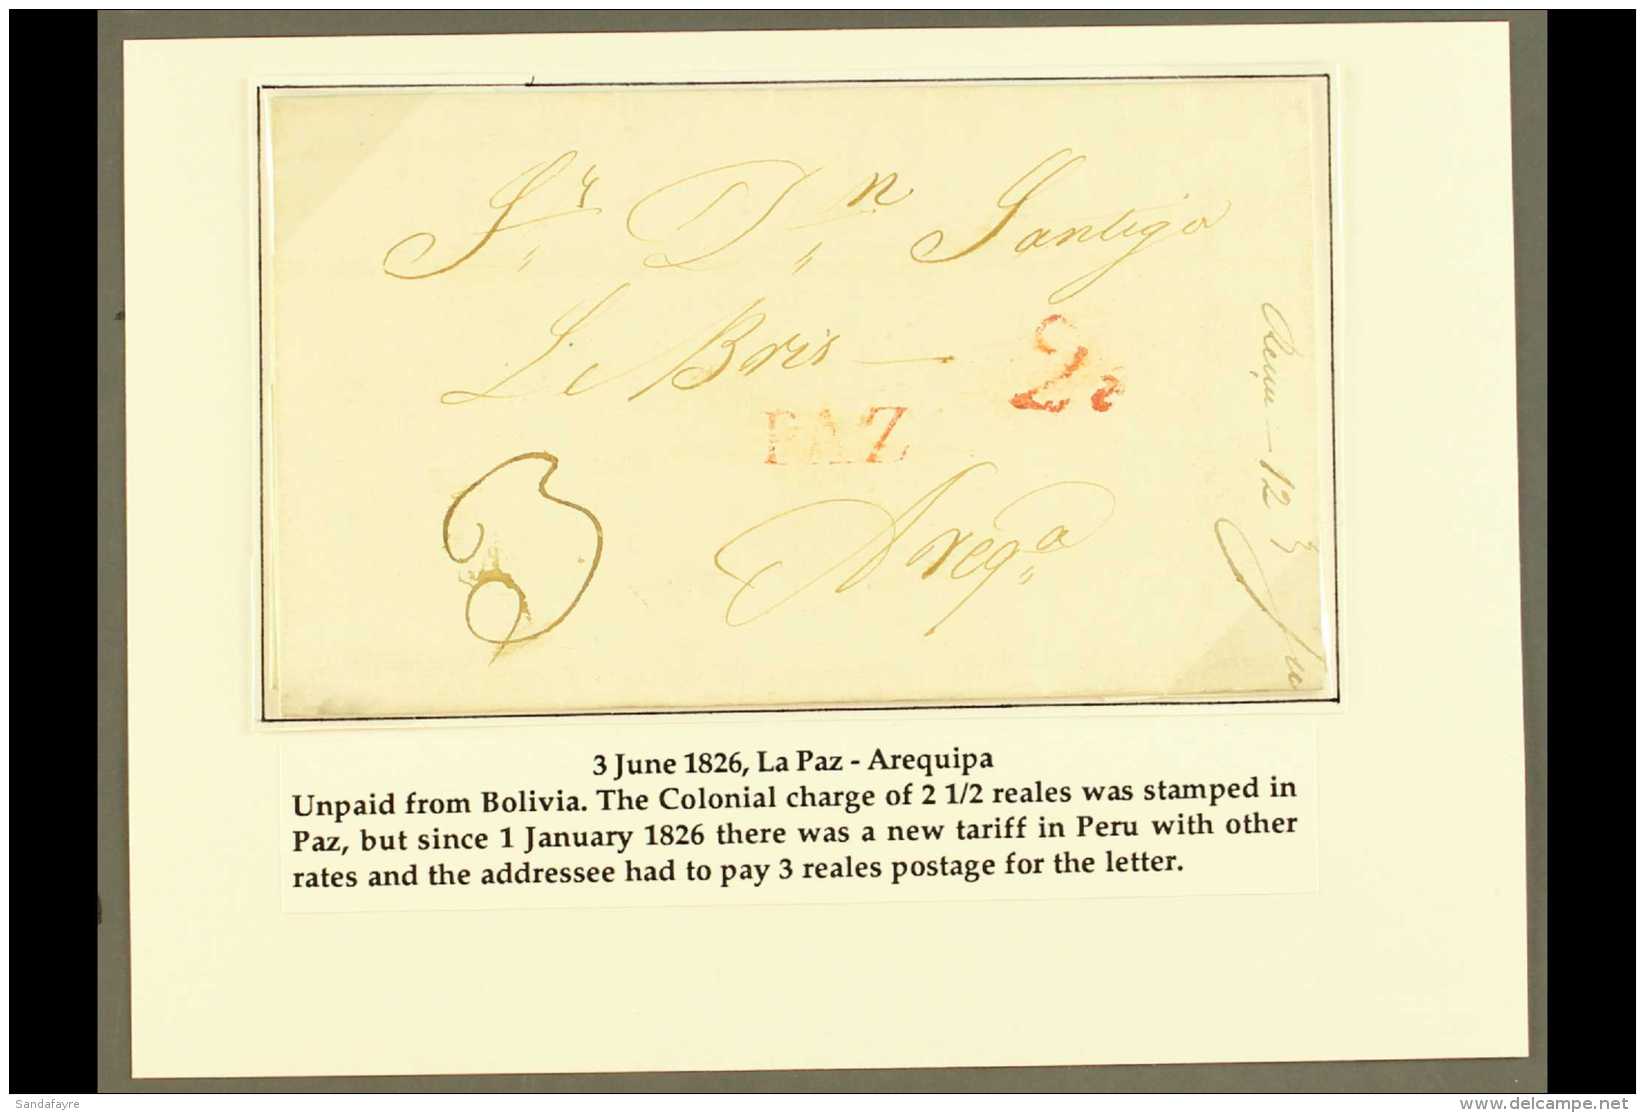 Sr Dn Santiago
Le Bris —
2r
PAZ
3
Areqa
12
3 June 1826, La Paz - Arequipa
Unpaid from Bolivia. The Colonial charge of 2 1/2 reales was stamped in
Paz, but since 1 January 1826 there was a new tariff in Peru with other
rates and the addressee had to pay 3 reales postage for the letter.
Sandafayre
www.delcampe.net